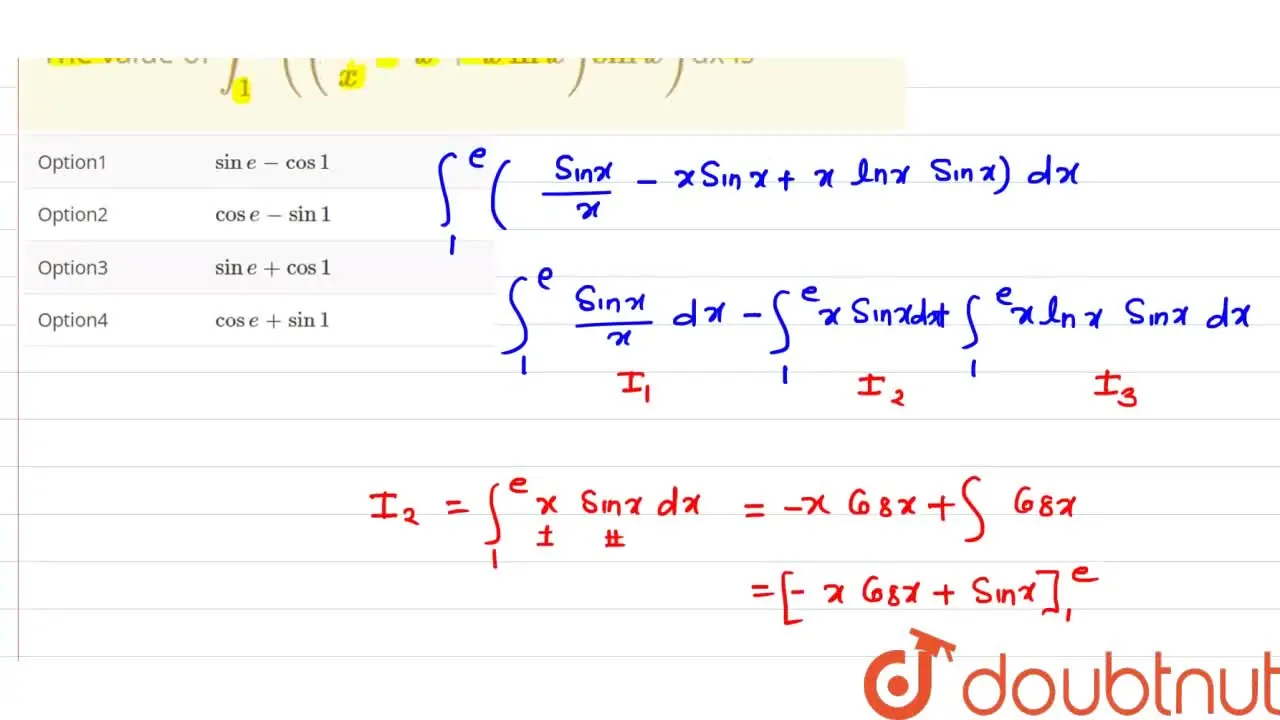 ∫₁ ((1/x - x + x ln x) sin x) dx is
Option1 sin e − cos 1
Option2 cos e − sin 1
Option3 sin e + cos 1
Option4 cos e + sin 1
∫₁ᵉ ( Sinx/x − x Sin x + x lnx Sin x) dx
∫₁ᵉ Sinx/x dx − ∫₁ᵉ x Sinxdx + ∫₁ᵉ x ln x Sinx dx
I₁ I₂ I₃
I₂ = ∫₁ᵉ x Sinx dx = −x Cosx + ∫ Cosx
I II
= [− x Cosx + Sinx]₁ᵉ
doubtnut